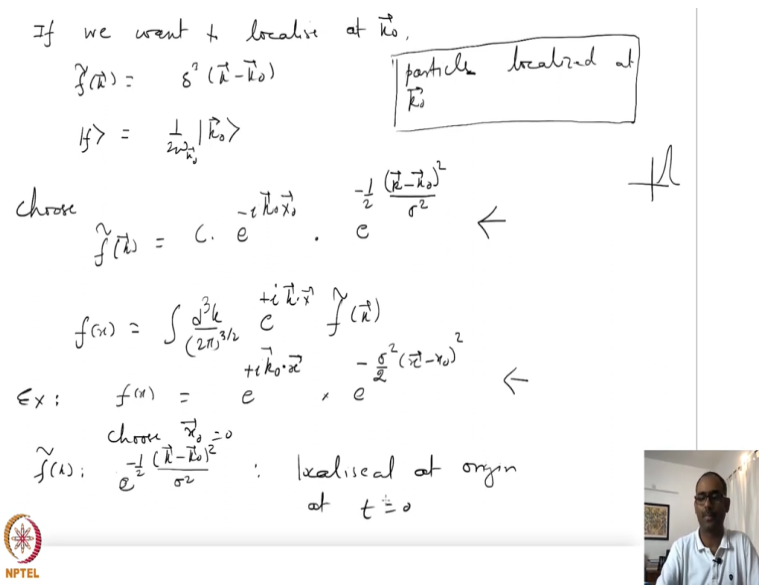 If we want to localise at k⃗₀,
f̃(k⃗) = δ³(k⃗-k⃗₀)
particle localized at k⃗₀
|f> = 1/2ω_k⃗₀ |k⃗₀>
choose
f̃(k⃗) = C. e^{-i k⃗₀.x⃗₀} . e^{-1/2 (k⃗-k⃗₀)²/σ²} ←
f(x) = ∫ d³k/(2π)^{3/2} e^{+i k⃗.x⃗} f̃(k⃗)
Ex: f(x) = e^{+i k⃗₀.x⃗} × e^{-σ²/2 (x⃗-x₀)²} ←
choose x⃗₀=0
f̃(k): e^{-1/2 (k⃗-k⃗₀)²/σ²} : localised at origin
at t=0
NPTEL